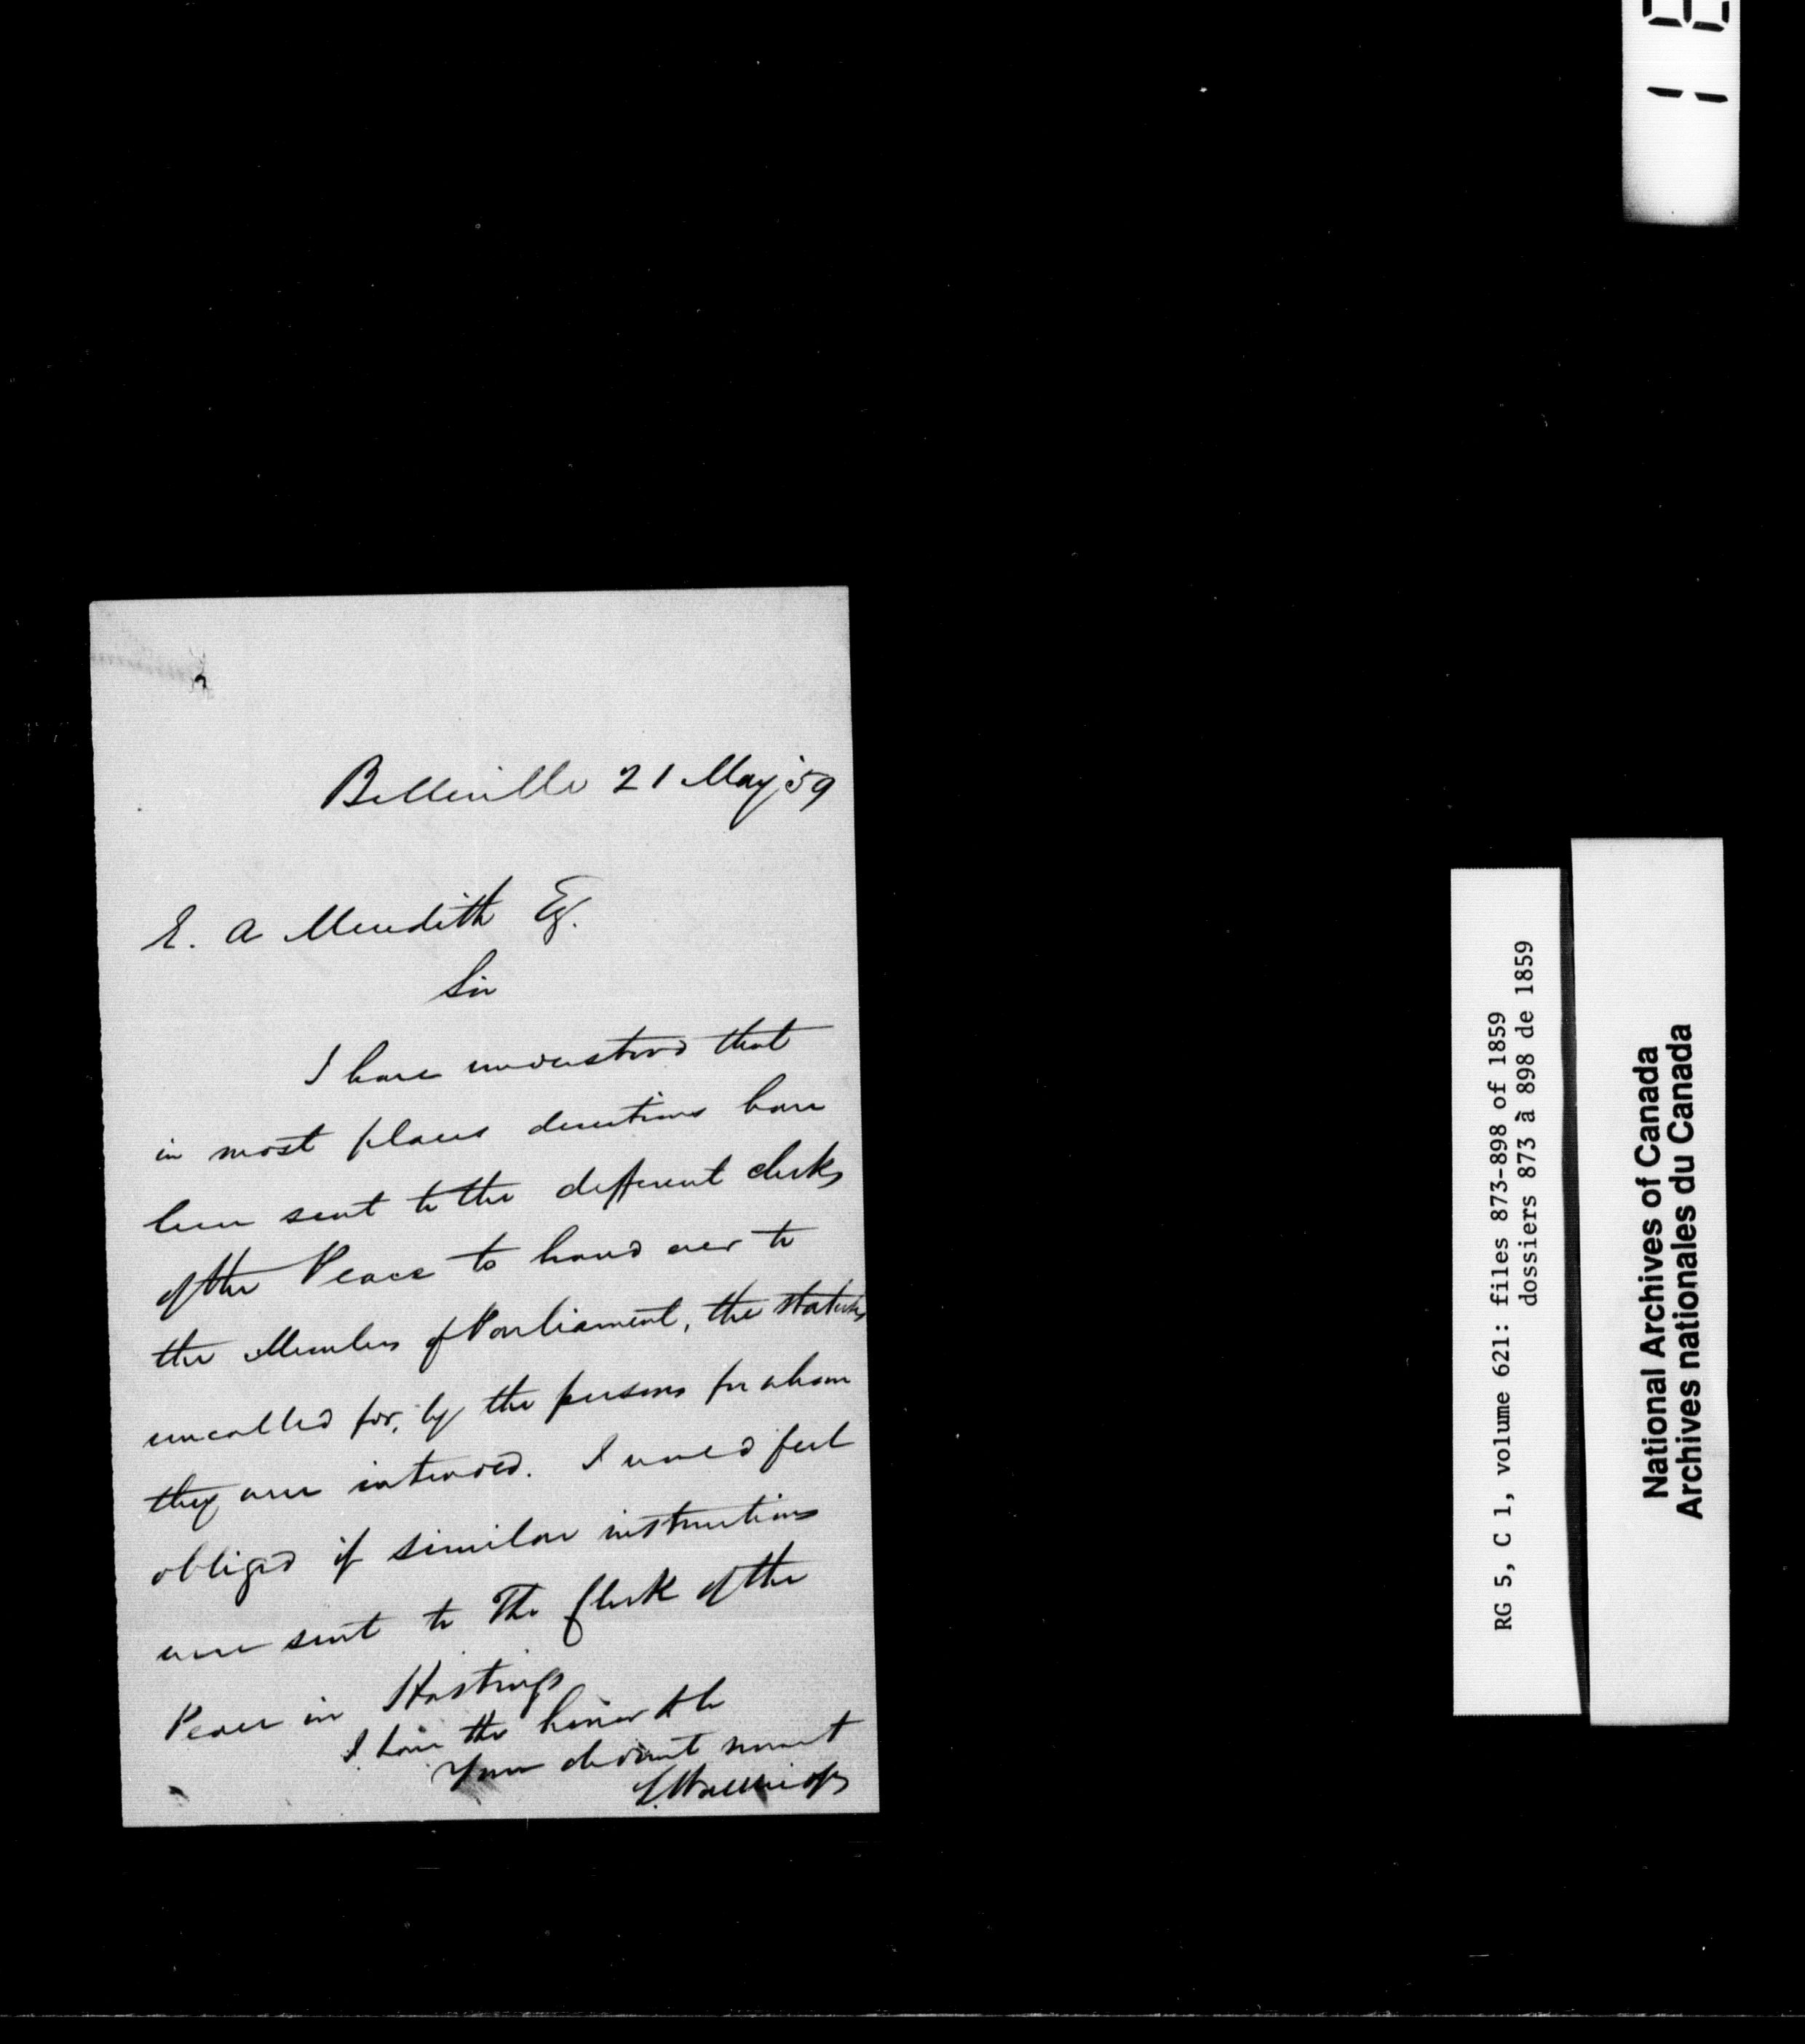 Belleville 21 May '59
E. A Meredith Esq.
Sir
I have understood that
in most places directions have
been sent to the different clerks
of the Peace to hand over to
the Members of Parliament, the statutes
uncalled for, by the persons for whom
they are intended. I would feel
obliged if similar instructions
were sent to The Clerk of the
Peace in Hastings
I have the honor to be
Your obedient servant
L. Wallbridge
RG 5, C 1, volume 621: files 873-898 of 1859
dossiers 873 à 898 de 1859
National Archives of Canada
Archives nationales du Canada